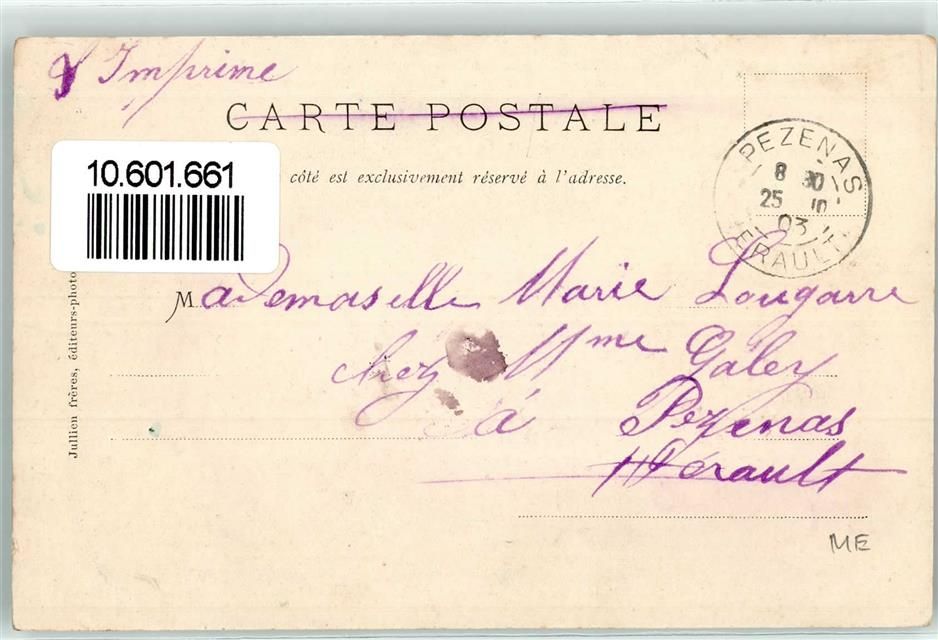 Imprime
CARTE POSTALE
10.601.661
côté est exclusivement réservé à l'adresse.
PEZENAS
8 30
25 10
03
HERAULT
Mademaselle Marie Lougarre
chez Mme Galey
á Pezenas
Hérault
Jullien frères, éditeurs-photo
ME